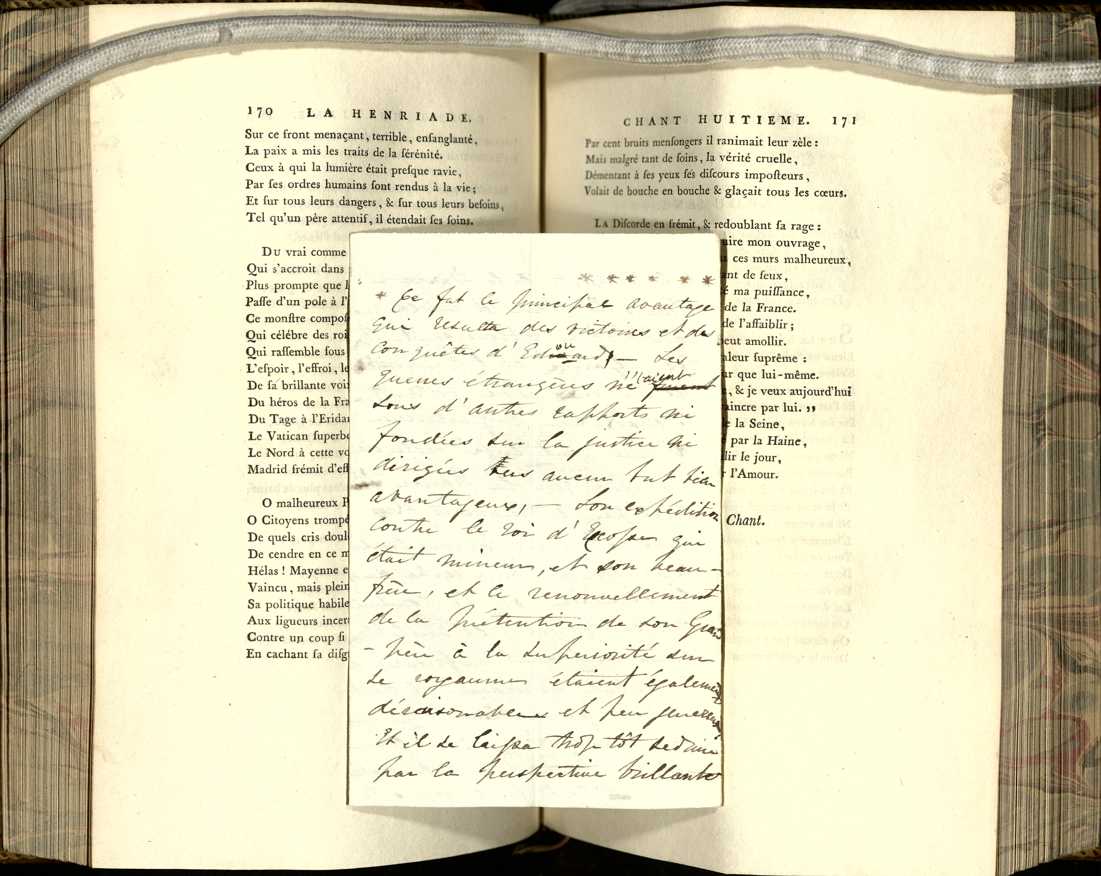 170 LA HENRIADE.
Sur ce front menaçant, terrible, enſanglanté,
La paix a mis les traits de la ſérénité.
Ceux à qui la lumière était preſque ravie,
Par ſes ordres humains ſont rendus à la vie;
Et ſur tous leurs dangers, & ſur tous leurs beſoins,
Tel qu'un père attentif, il étendait ſes ſoins.
DU vrai comme
Qui s'accroit dans
Plus prompte que l
Paſſe d'un pole à l'
Ce monſtre compoſ
Qui célébre des roi
Qui raſſemble ſous
L'eſpoir, l'effroi, le
De ſa brillante voi
Du héros de la Fra
Du Tage à l'Eridan
Le Vatican ſuperbe
Le Nord à cette vo
Madrid frémit d'eff
O malheureux P
O Citoyens trompé
De quels cris doul
De cendre en ce m
Hélas ! Mayenne e
Vaincu, mais plein
Sa politique habile
Aux ligueurs incert
Contre un coup ſi
En cachant ſa diſg
* * * * * * *
* Ce fut le principal avantage
qui resulta des victoires et des
conquêtes d'Edouard, — Les
guerres étrangères n'étaient
sous d'autres rapports ni
fondées sur la justice ni
dirigées vers aucun but bien
avantageux, — Son expédition
contre le roi d'Ecosse qui
était mineur, et son beau-
frère, et le renouvellement
de la prétention de son Grand
-père à la superiorité sur
ce royaume étaient également
déraisonables et peu genereuses
Et il se laissa trop tôt seduire
par la perspective brillante
CHANT HUITIEME. 171
Par cent bruits menſongers il ranimait leur zèle :
Mais malgré tant de ſoins, la vérité cruelle,
Démentant à ſes yeux ſes diſcours impoſteurs,
Volait de bouche en bouche & glaçait tous les cœurs.
LA Diſcorde en frémit, & redoublant ſa rage :
uire mon ouvrage,
ces murs malheureux,
ant de feux,
é ma puiſſance,
de la France.
de l'affaiblir ;
eut amollir.
aleur ſuprême :
ar que lui-même.
, & je veux aujourd'hui
aincre par lui. ,,
e la Seine,
par la Haine,
lir le jour,
r l'Amour.
Chant.